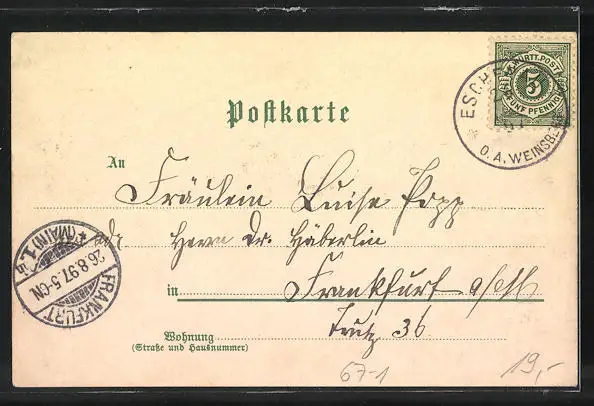 K. WÜRTT. POST
5
FÜNF PFENNIG
ESCHE
O.A. WEINSBE
Postkarte
An
Fräulein Luise Popp
adr. Herrn Dr. Häberlin
in Frankfurt a/M
Trutz 36
Wohnung
(Straße und Hausnummer)
FRANKFURT
(MAIN) 1.
26.8.97. 5-6N.
67-1
19,-